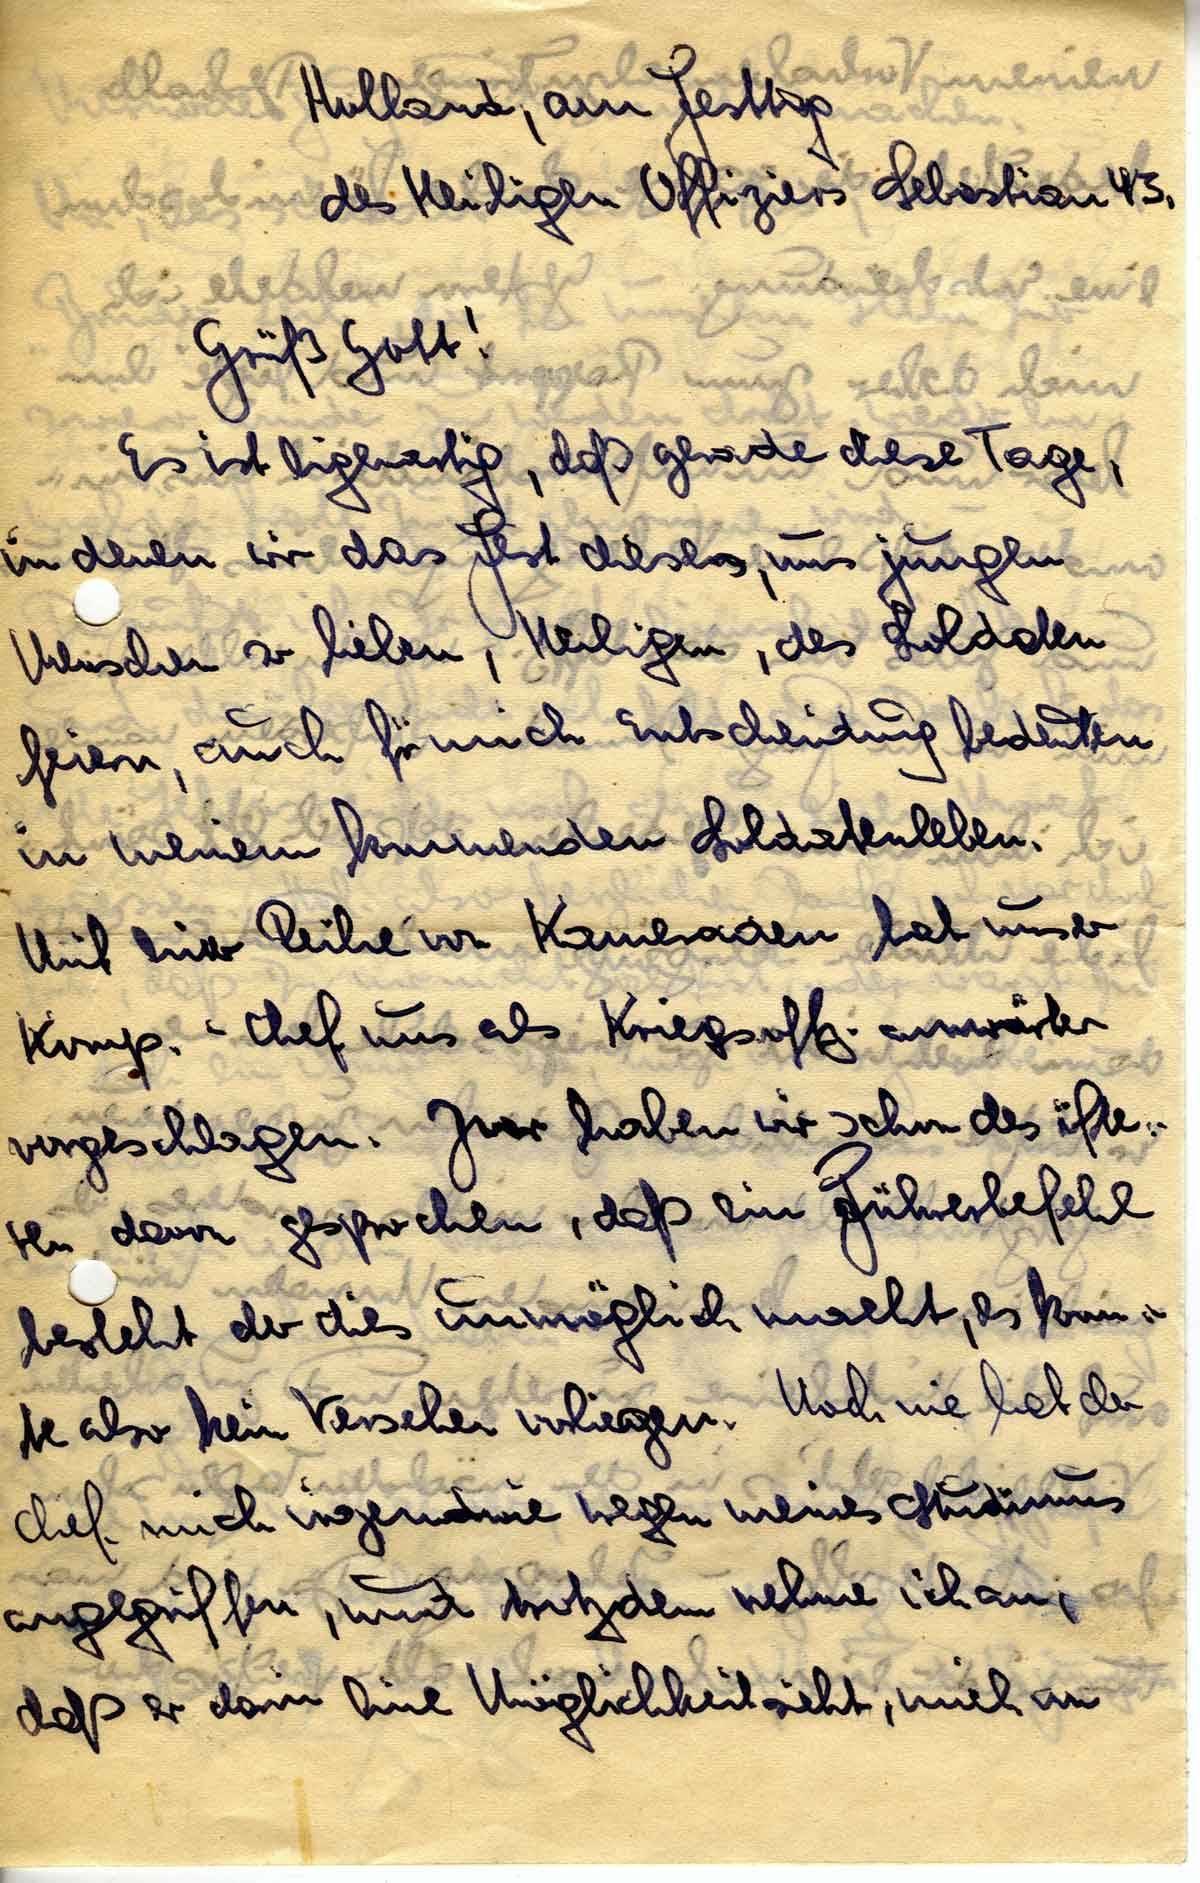 Holland, am Festtag
des Heiligen Offiziers Sebastian 43.
Grüß Gott!
Es ist eigenartig, daß gerade diese Tage,
in denen wir das Fest dieses, uns jungen
Menschen so lieben, Heiligen, des Soldaten
feiern, auch für mich Entscheidung bedeuten
in meinem kommenden Soldatenleben.
Mit einer Reihe von Kameraden hat unser
Komp.-Chef uns als Kriegsoffz. anwärter
vorgeschlagen. Zwar haben wir schon des öfte-
ren davon gesprochen, daß ein Führerbefehl
besteht der dies unmöglich macht, es konn-
te also kein Versehen vorliegen. Noch nie hat der
Chef mich irgendwie wegen meines Studiums
angegriffen, und trotzdem nehme ich an,
daß er darin eine Möglichkeit sieht, mich von